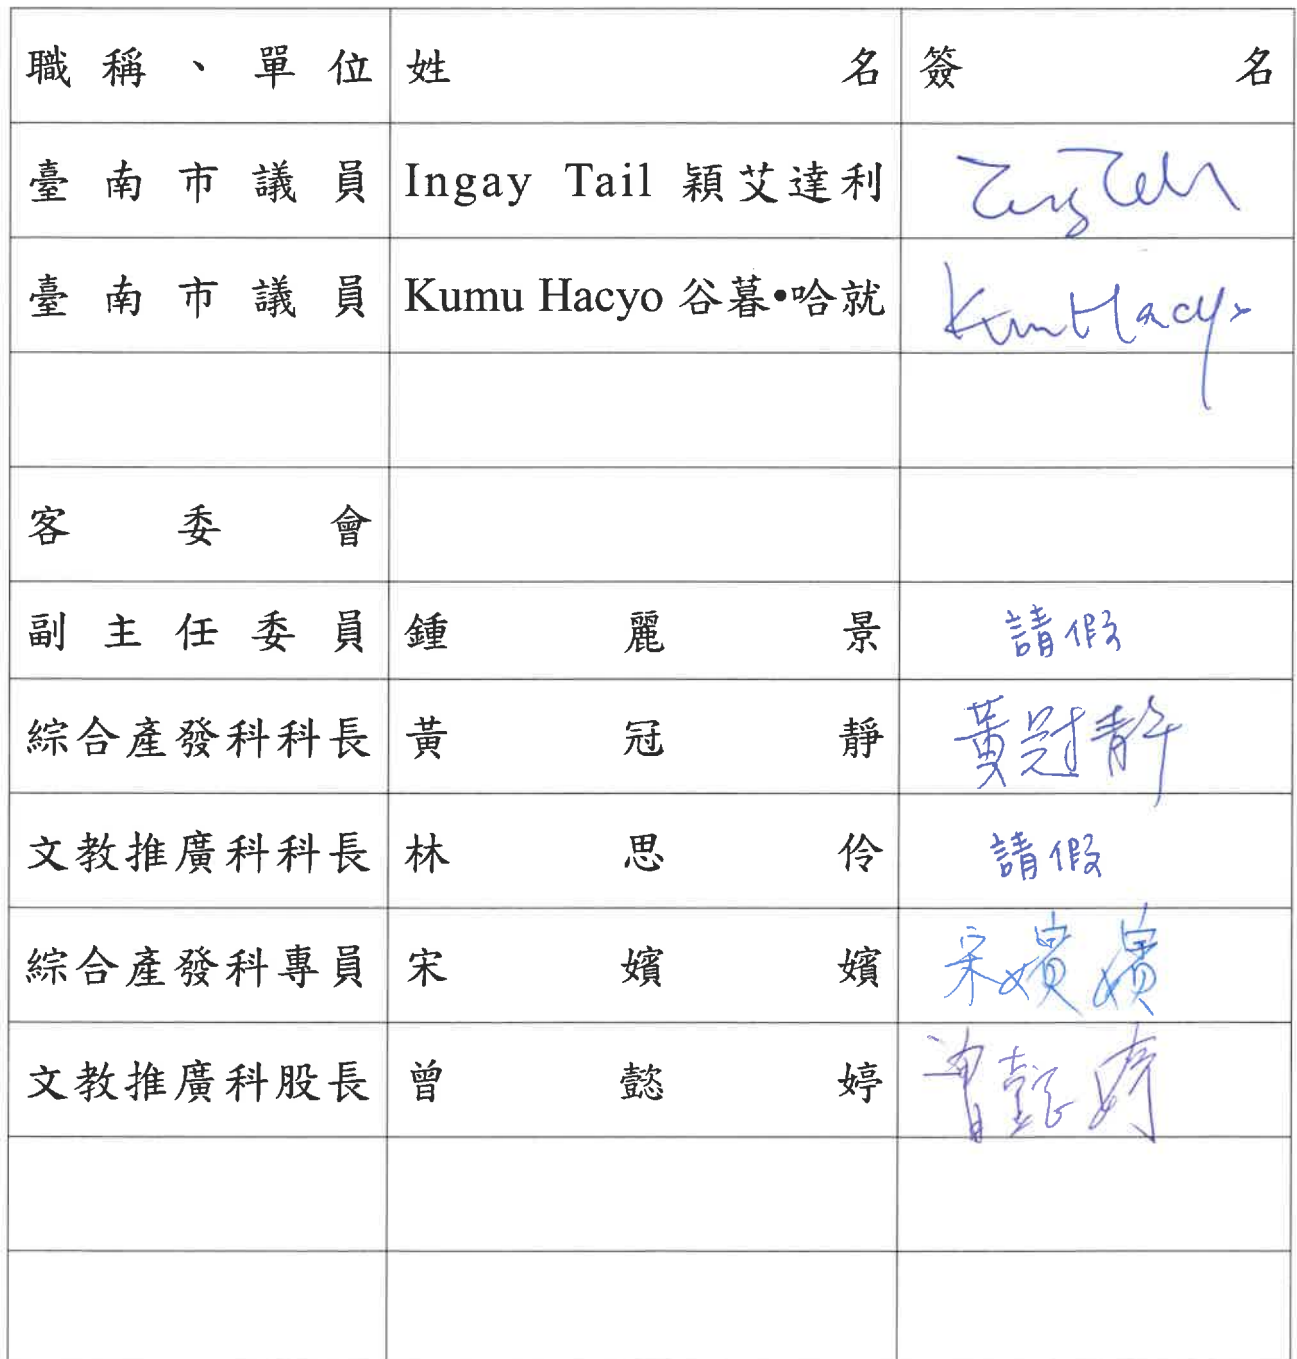 職稱、單位 姓名 簽名
臺南市議員 Ingay Tail 穎艾達利
臺南市議員 Kumu Hacyo 谷暮•哈就 Kumu Hacyo
客委會
副主任委員 鍾麗景 請假
綜合產發科科長 黃冠靜 黃冠靜
文教推廣科科長 林思伶 請假
綜合產發科專員 宋嬪嬪 宋嬪嬪
文教推廣科股長 曾懿婷 曾懿婷